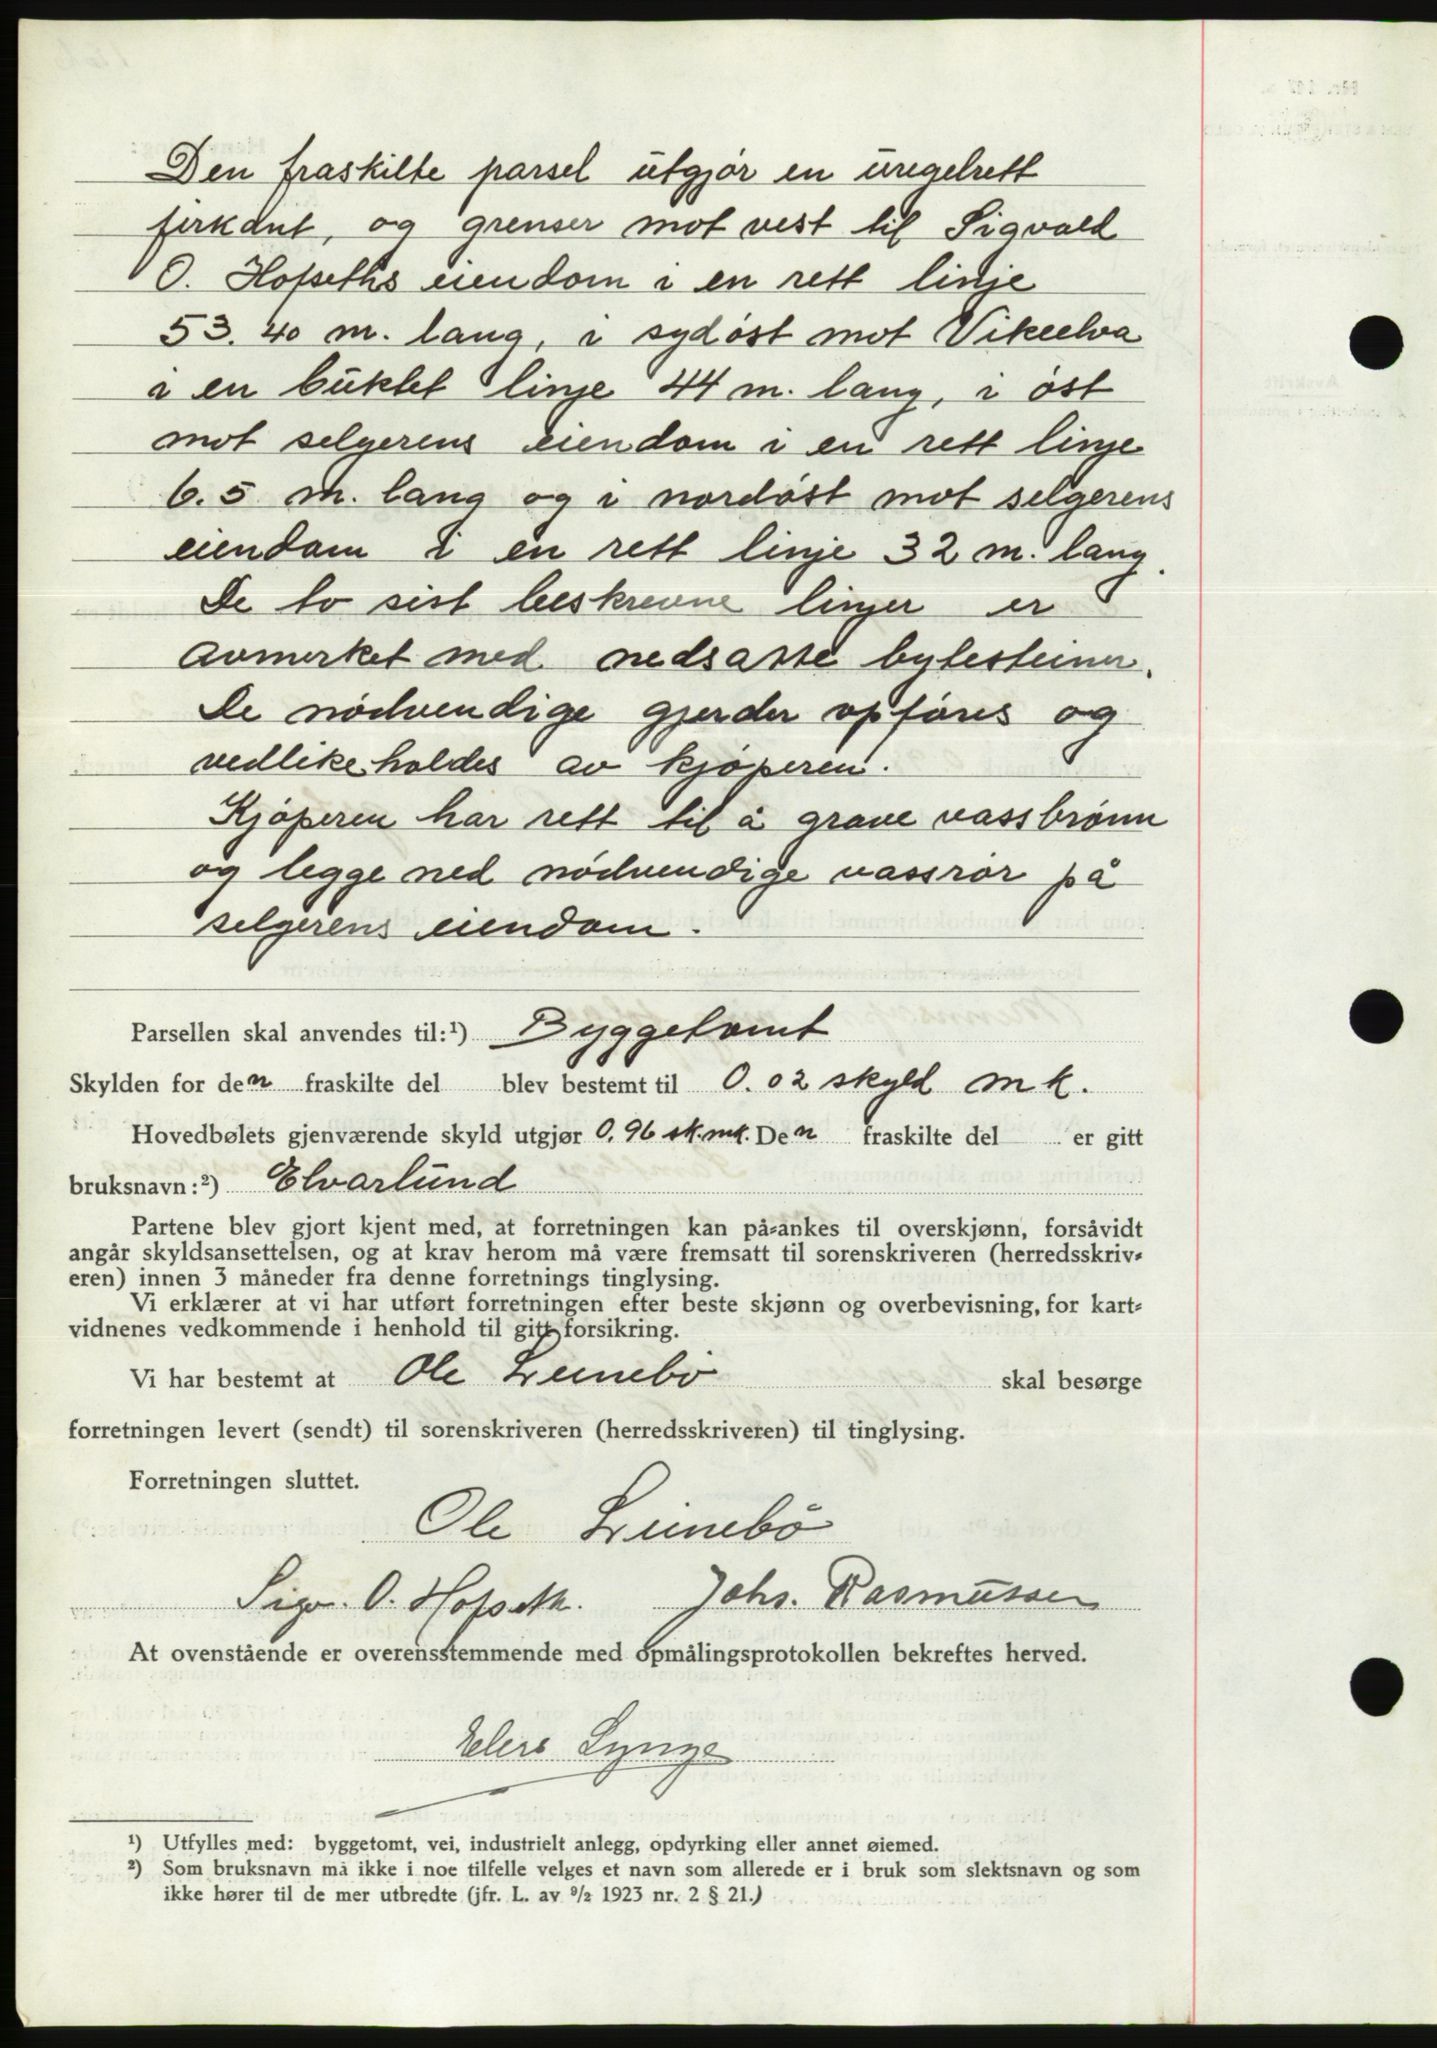 Den fraskilte parsel utgjør en uregelrett
firkant, og grenser mot vest til Sigvald
O. Hofseths eiendom i en rett linje
53.40 m. lang, i sydøst mot Vikeelva
i en buktet linje 44 m. lang, i øst
mot selgerens eiendom i en rett linje
6.5 m. lang og i nordøst mot selgerens
eiendom i en rett linje 32 m. lang.
De to sist beskrevne linjer er
avmerket med nedsatte bytesteiner.
De nødvendige gjerder opføres og
vedlikeholdes av kjøperen.
Kjøperen har rett til å grave vassbrønn
og legge ned nødvendige vassrør på
selgerens eiendom.
Parsellen skal anvendes til:¹) Byggetomt
Skylden for den fraskilte del blev bestemt til 0.02 skyld mk.
Hovedbølets gjenværende skyld utgjør 0,96 sk.mk. Den fraskilte del er gitt
bruksnavn:²) Elvarlund
Partene blev gjort kjent med, at forretningen kan på-ankes til overskjønn, forsåvidt
angår skyldsansettelsen, og at krav herom må være fremsatt til sorenskriveren (herredsskriv-
eren) innen 3 måneder fra denne forretnings tinglysing.
Vi erklærer at vi har utført forretningen efter beste skjønn og overbevisning, for kart-
vidnenes vedkommende i henhold til gitt forsikring.
Vi har bestemt at Ole Leinebø skal besørge
forretningen levert (sendt) til sorenskriveren (herredsskriveren) til tinglysing.
Forretningen sluttet.
Ole Leinebø
Sigv. O. Hofseth. Johs. Rasmussen
At ovenstående er overensstemmende med opmålingsprotokollen bekreftes herved.
Lynge
¹) Utfylles med: byggetomt, vei, industrielt anlegg, opdyrking eller annet øiemed.
²) Som bruksnavn må ikke i noe tilfelle velges et navn som allerede er i bruk som slektsnavn og som
ikke hører til de mer utbredte (jfr. L. av ⁹/₂ 1923 nr. 2 § 21.)